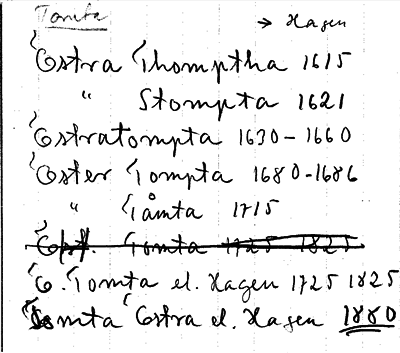 Tomta → Hagen
Östra Thomptha 1615
" Stompta 1621
Östratompta 1630-1660
Öster Tompta 1680-1686
" Tåmta 1715
Ö. Tomta 1725 1825
Ö. Tomta el. Hagen 1725 1825
Tomta Östra el. Hagen 1880